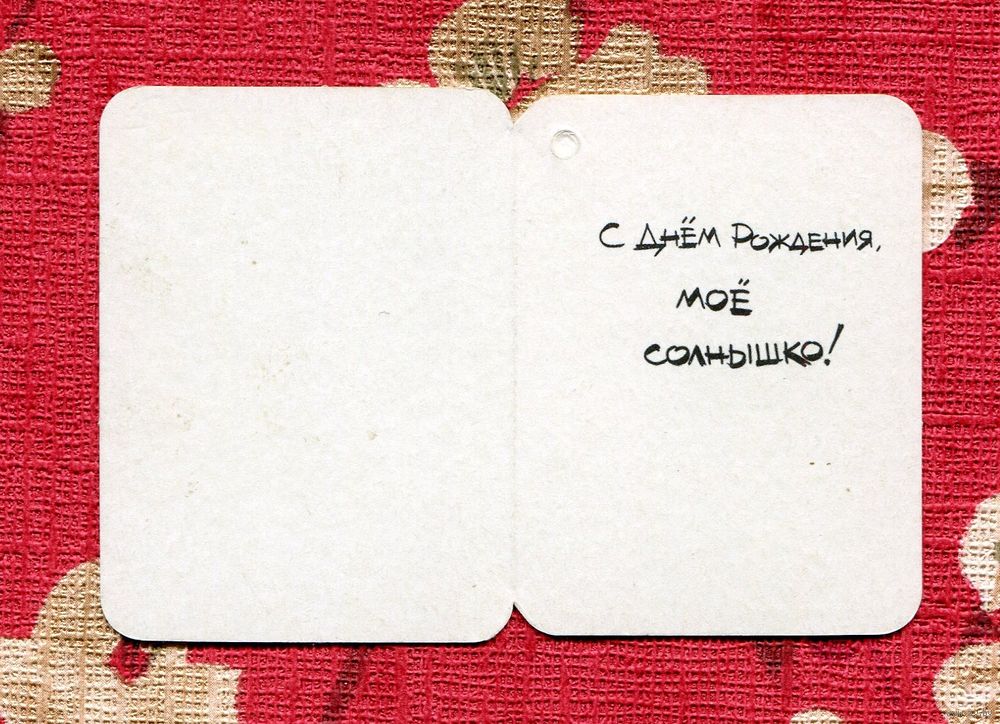 С ДНЁМ РОЖДЕНИЯ,
МОЁ
СОЛНЫШКО!